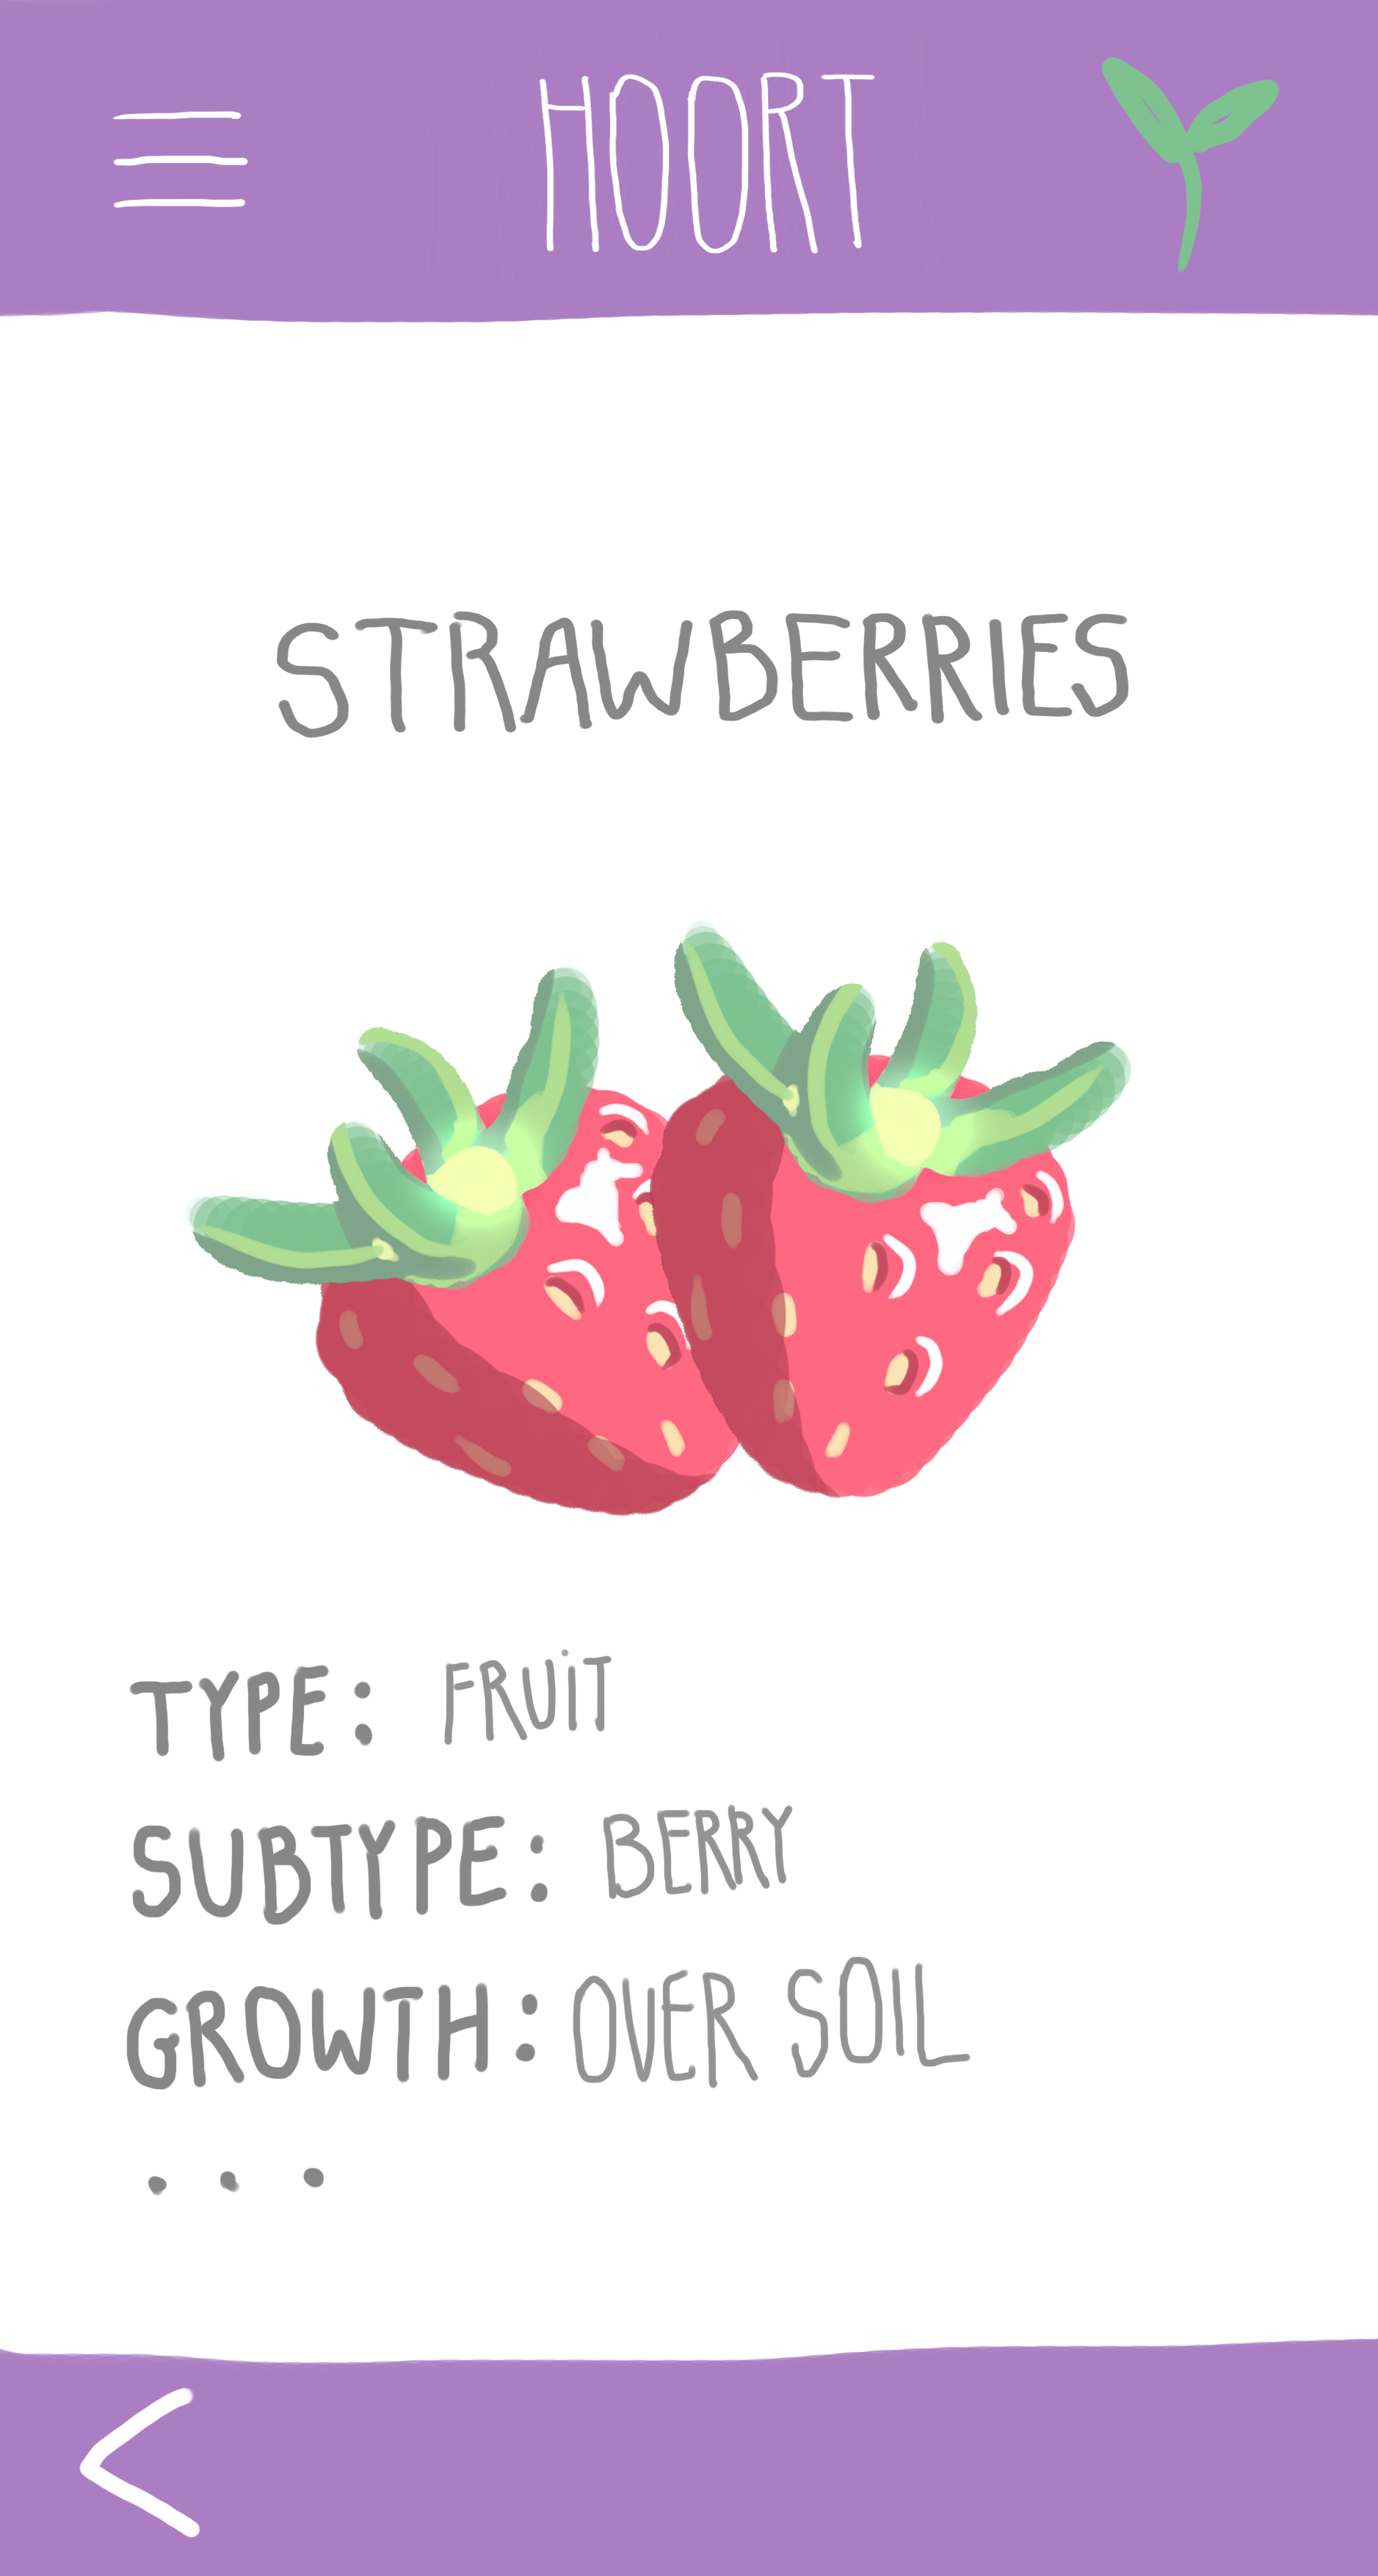 HOORT
STRAWBERRIES
TYPE: FRUIT
SUBTYPE: BERRY
GROWTH: OVER SOIL
...